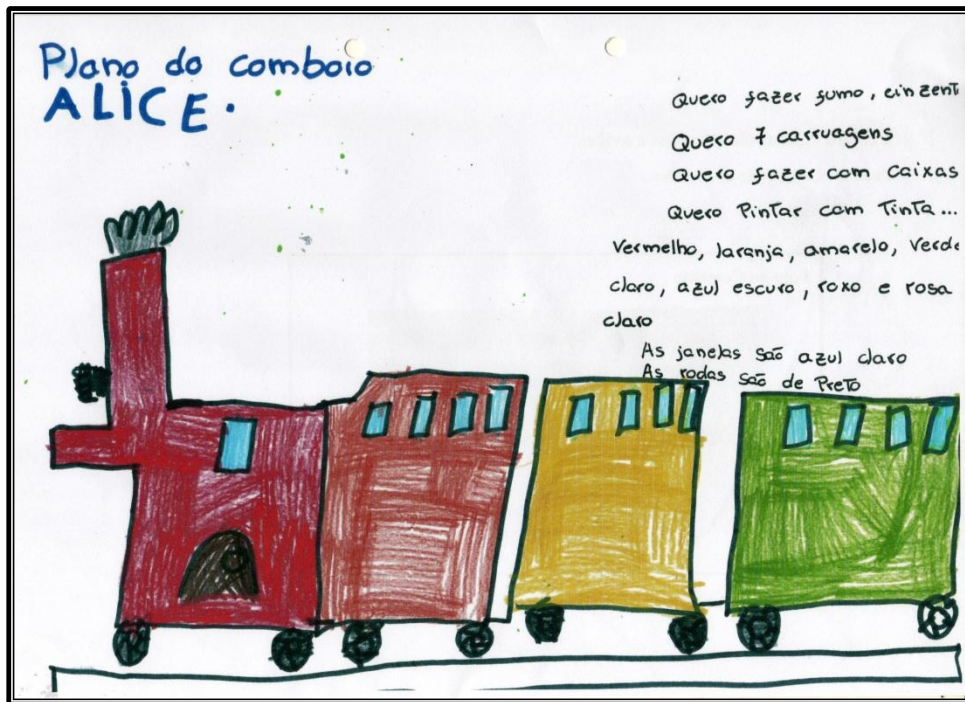 Plano do comboio
ALICE.
Quero fazer fumo, cinzent
Quero 7 carruagens
Quero fazer com caixas
Quero Pintar com Tinta...
Vermelho, laranja, amarelo, Verde
claro, azul escuro, roxo e rosa
claro
As janelas são azul claro
As rodas são de Preto